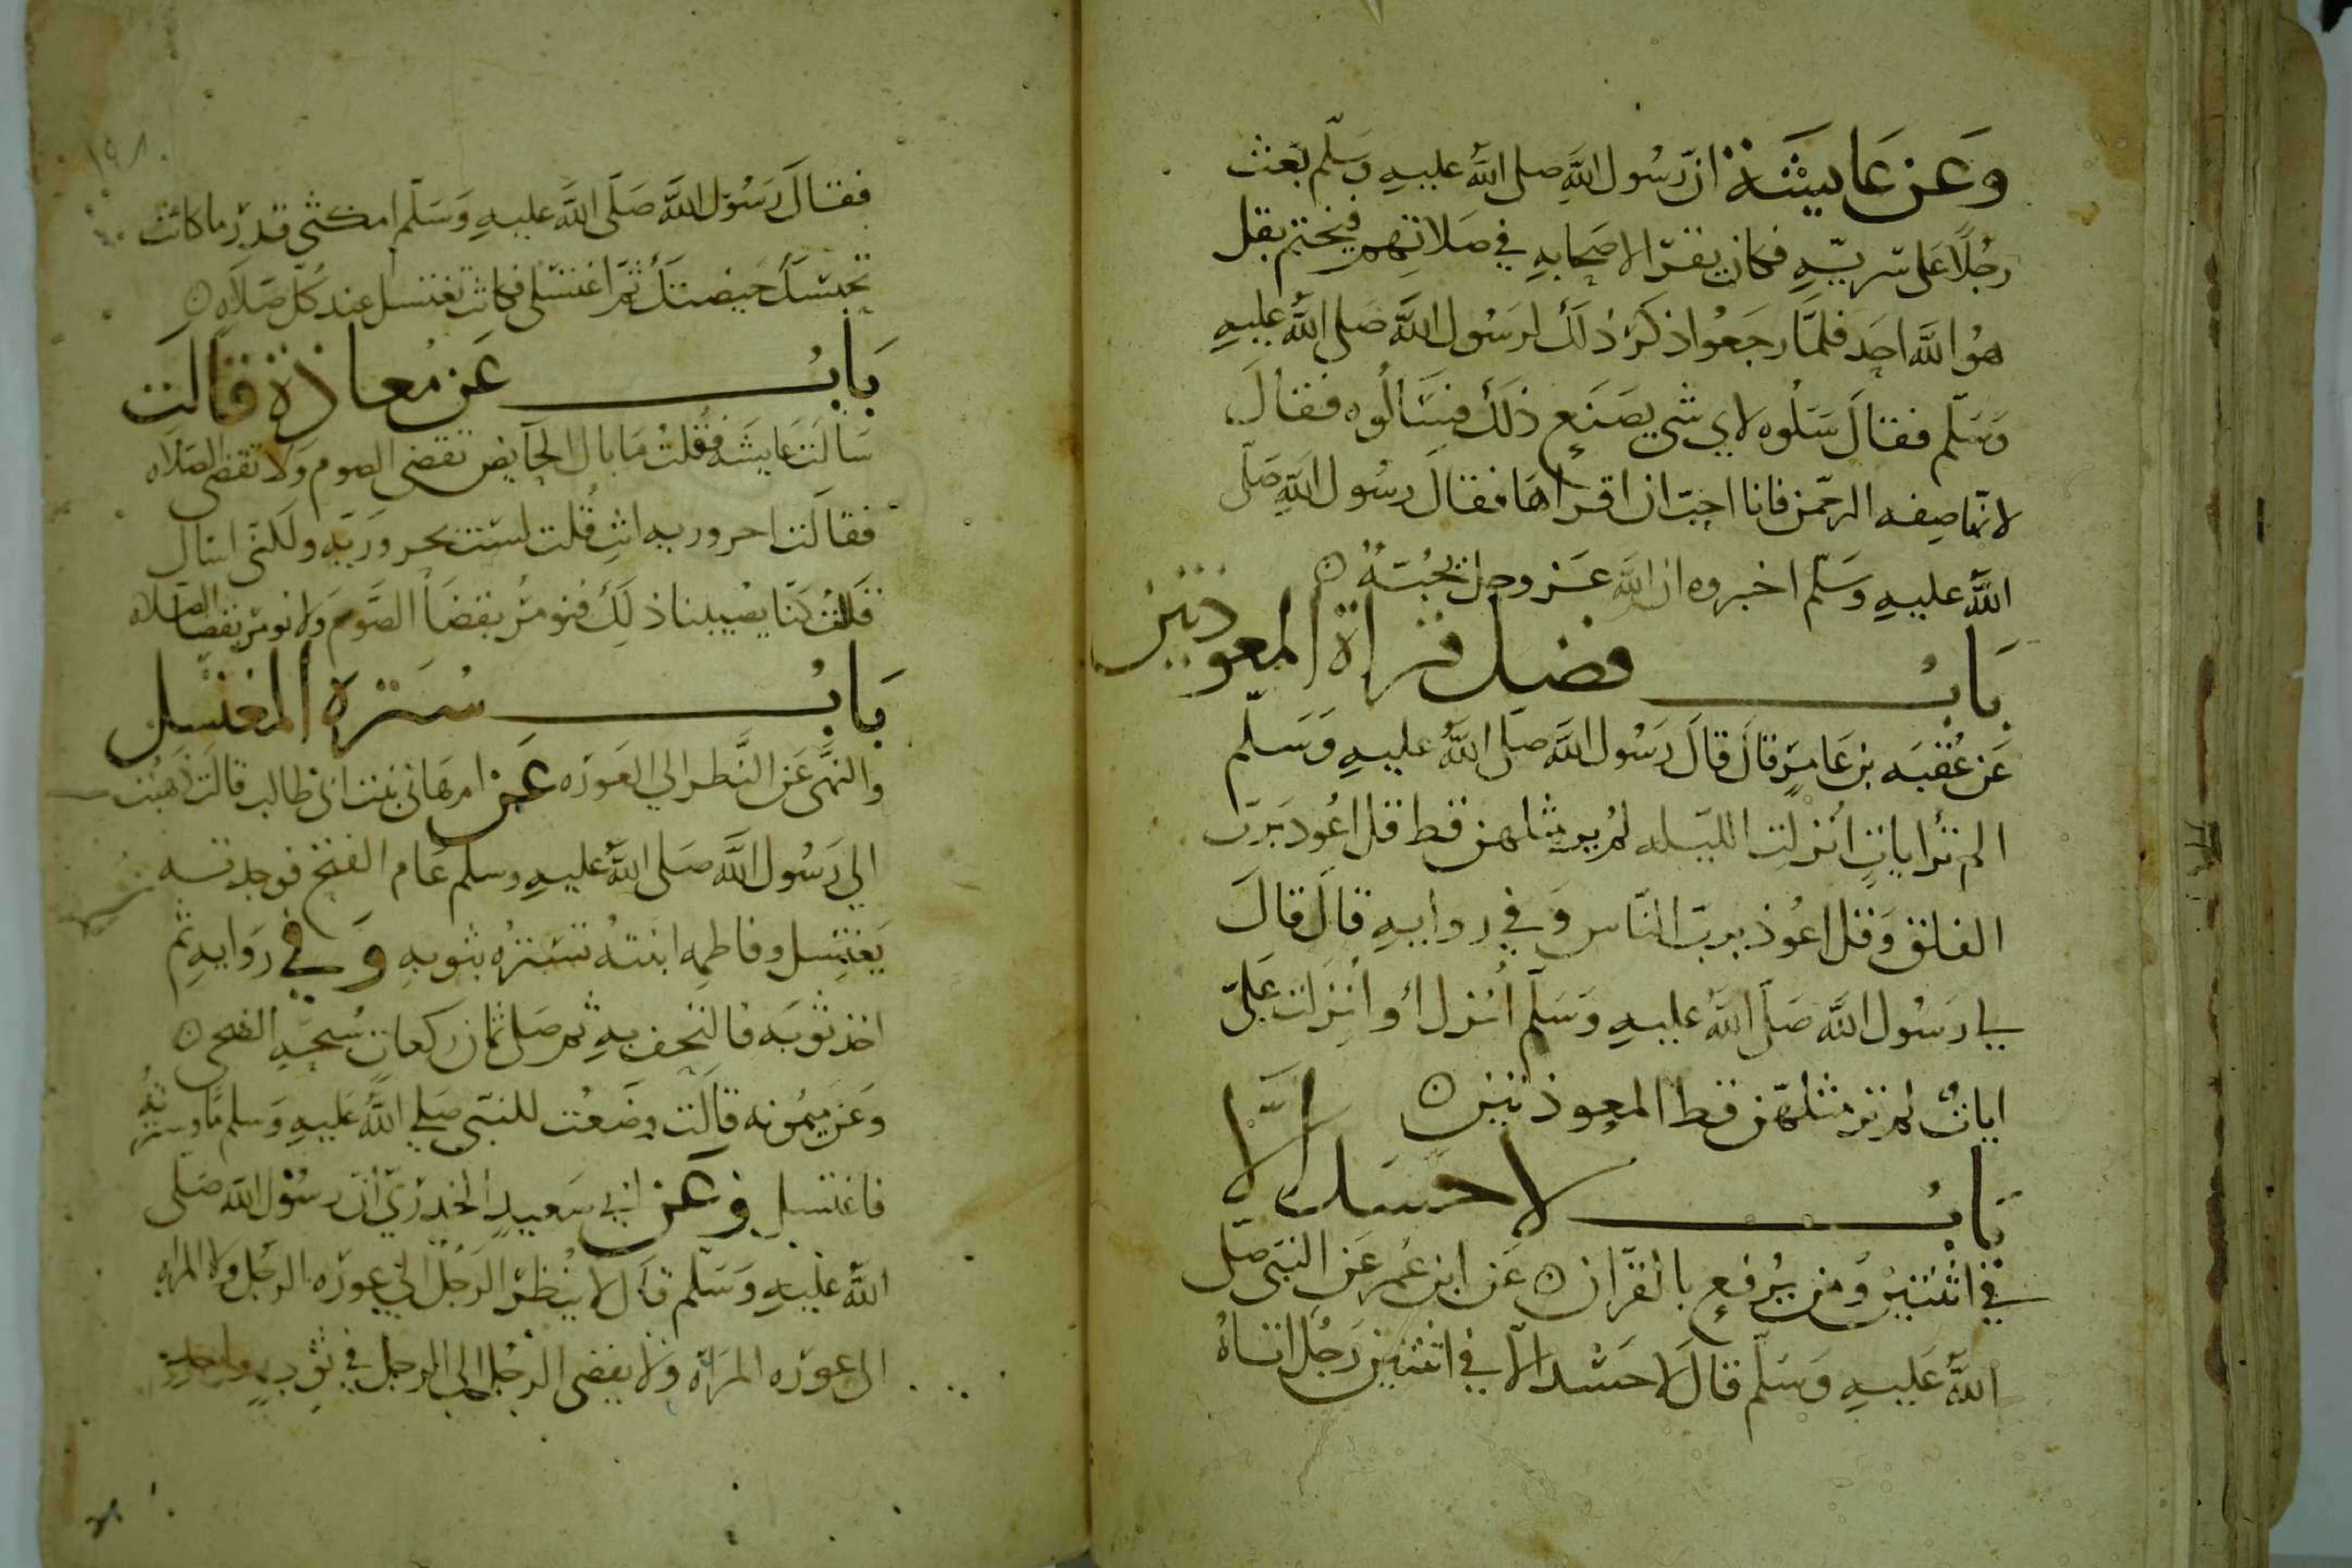 وعن عايشة ان رسول الله صلى الله عليه وسلم بعث
رجلا على سريه فكان يقرا لاصحابه في صلاتهم فيختم بقل
هو الله احد فلما رجعوا ذكر ذلك لرسول الله صلى الله عليه
وسلم فقال سلوه لاي شي يصنع ذلك فسالوه فقال
لانها صفه الرحمن فانا احب ان اقراها فقال رسول الله صلى
الله عليه وسلم اخبروه ان الله عز وجل يحبه
باب فضل قراة المعوذتين
عن عقبه بن عامر قال قال رسول الله صلى الله عليه وسلم
الم تر ايات انزلت الليله لم ير مثلهن قط قل اعوذ برب
الفلق وقل اعوذ برب الناس وفي روايه قال قال
لي رسول الله صلى الله عليه وسلم انزل او انزلت علي
ايات لم تر مثلهن قط المعوذتين
باب لا حسد الا
في اثنتين ومن يرفع بالقران عن ابن عمر عن النبي صلى
الله عليه وسلم قال لا حسد الا في اثنتين رجل اتاه
١٩٨
فقال رسول الله صلى الله عليه وسلم امكثي قدر ما كانت
تحبسك حيضتك ثم اغتسلي فكانت تغتسل عند كل صلاه
باب عن معاذة قالت
سالت عايشه فقلت ما بال الحايض تقضي الصوم ولا تقضي الصلاه
فقالت احروريه انت قلت لست بحروريه ولكني اسال
فقالت كنا يصيبنا ذلك فنومر بقضا الصوم ولا نومر بقضا الصلاه
باب سترة المغتسل
والنهى عن النظر الي العوره عن ام هاني بنت ابي طالب قالت ذهبت
الي رسول الله صلى الله عليه وسلم عام الفتح فوجدته
يغتسل وفاطمه ابنته تستره بثوبه وفي روايه ثم
اخذ ثوبه فالتحف به ثم صلى ثمان ركعات سبحه الضحى
وعن ميمونه قالت وضعت للنبي صلي الله عليه وسلم ما وسترته
فاغتسل وعن ابي سعيد الخدري ان رسول الله صلى
الله عليه وسلم قال لا ينظر الرجل الي عوره الرجل ولا المراه
الى عوره المراة ولا يفضى الرجل الى الرجل في ثوب واحد